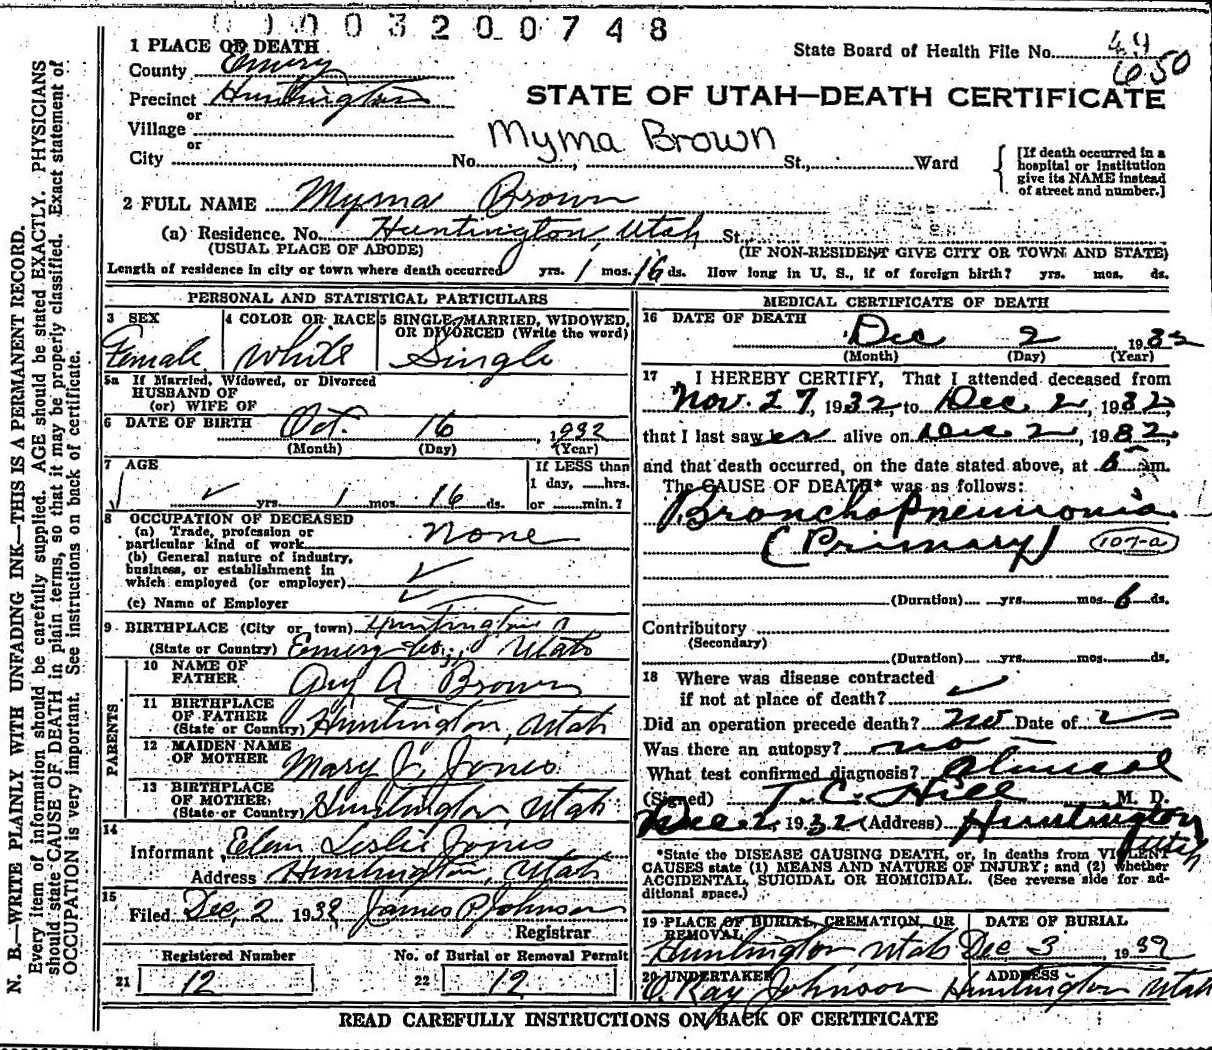 0 0 0 0 3 2 0 0 7 4 8
1 PLACE OF DEATH
State Board of Health File No. 49
650
County Emery
Precinct Huntington
STATE OF UTAH—DEATH CERTIFICATE
or
Village
Myrna Brown
or
City No. , St., Ward
[If death occurred in a
hospital or institution
give its NAME instead
of street and number.]
2 FULL NAME Myrna Brown
(a) Residence. No. Huntington, Utah St.,
(USUAL PLACE OF ABODE) (IF NON-RESIDENT GIVE CITY OR TOWN AND STATE)
Length of residence in city or town where death occurred yrs. 1 mos. 16 ds. How long in U. S., if of foreign birth? yrs. mos. ds.
PERSONAL AND STATISTICAL PARTICULARS
3 SEX
Female
4 COLOR OR RACE
White
5 SINGLE, MARRIED, WIDOWED,
OR DIVORCED (Write the word)
Single
5a If Married, Widowed, or Divorced
HUSBAND OF
(or) WIFE OF
6 DATE OF BIRTH Oct. 16, 1932
(Month) (Day) (Year)
7 AGE
yrs. 1 mos. 16 ds.
If LESS than
1 day, hrs.
or min.?
8 OCCUPATION OF DECEASED
(a) Trade, profession or
particular kind of work None
(b) General nature of industry,
business, or establishment in
which employed (or employer)
(c) Name of Employer
9 BIRTHPLACE (City or town) Huntington
(State or Country) Emery Co., Utah
PARENTS
10 NAME OF
FATHER Guy A Brown
11 BIRTHPLACE
OF FATHER
(State or Country) Huntington, Utah
12 MAIDEN NAME
OF MOTHER Mary J. Jones
13 BIRTHPLACE
OF MOTHER
(State or Country) Huntington, Utah
14
Informant Elem Leslie Jones
Address Huntington, Utah
15
Filed Dec, 2 1932 James P Johnson
Registrar
Registered Number
21 12
No. of Burial or Removal Permit
22 12
MEDICAL CERTIFICATE OF DEATH
16 DATE OF DEATH
Dec 2 1932
(Month) (Day) (Year)
17 I HEREBY CERTIFY, That I attended deceased from
Nov. 27, 1932, to Dec. 2, 1932,
that I last saw her alive on Dec 2, 1932,
and that death occurred, on the date stated above, at m.
The CAUSE OF DEATH* was as follows:
Broncho Pneumonia
(Primary) 107-a
(Duration) yrs. mos. 6 ds.
Contributory
(Secondary)
(Duration) yrs. mos. ds.
18 Where was disease contracted
if not at place of death?
Did an operation precede death? no Date of
Was there an autopsy? no
What test confirmed diagnosis? Clinical
(Signed) T. C. Hill M. D.
Dec 2, 1932 (Address) Huntington
Utah
*State the DISEASE CAUSING DEATH, or, in deaths from VIOLENT
CAUSES state (1) MEANS AND NATURE OF INJURY; and (2) whether
ACCIDENTAL, SUICIDAL OR HOMICIDAL. (See reverse side for ad-
ditional space.)
19 PLACE OF BURIAL, CREMATION, OR
REMOVAL
Huntington Utah
DATE OF BURIAL
Dec 3, 1932
20 UNDERTAKER
O. Ray Johnson
ADDRESS
Huntington Utah
READ CAREFULLY INSTRUCTIONS ON BACK OF CERTIFICATE
N. B.—WRITE PLAINLY WITH UNFADING INK—THIS IS A PERMANENT RECORD.
Every item of information should be carefully supplied. AGE should be stated EXACTLY. PHYSICIANS
should state CAUSE OF DEATH in plain terms, so that it may be properly classified. Exact statement of
OCCUPATION is very important. See instructions on back of certificate.